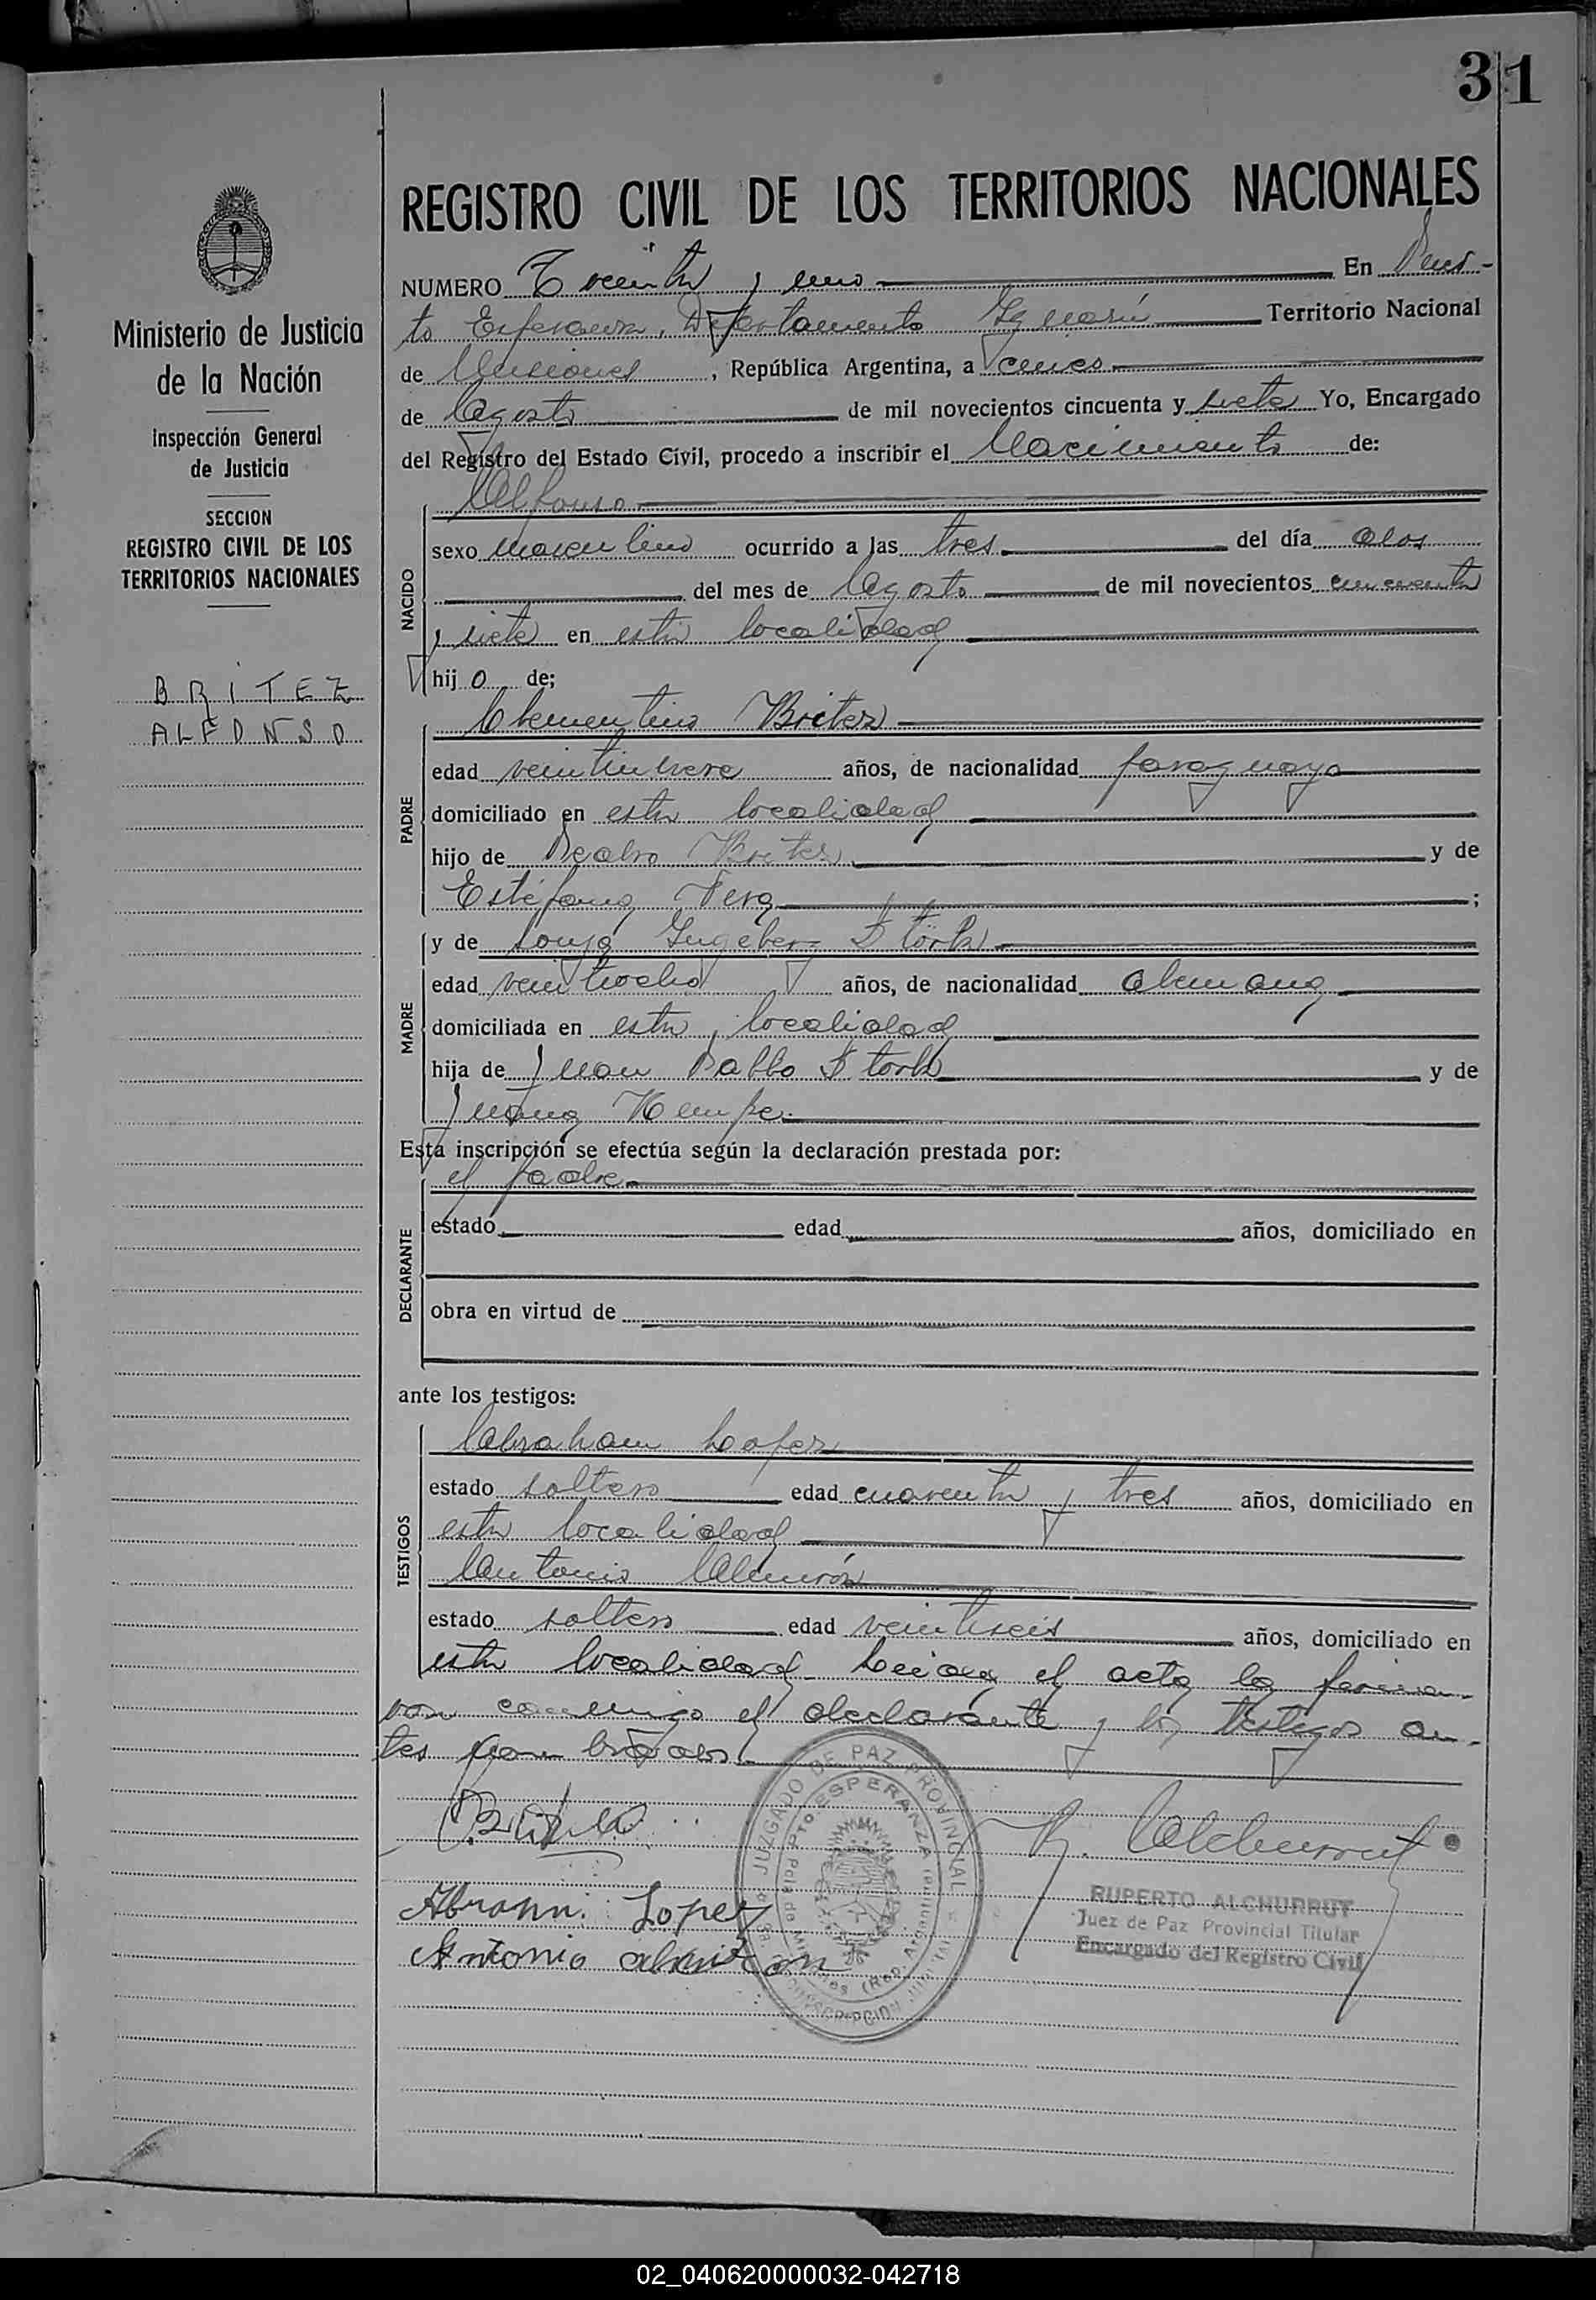 31
REGISTRO CIVIL DE LOS TERRITORIOS NACIONALES
Ministerio de Justicia
de la Nación
Inspección General
de Justicia
SECCION
REGISTRO CIVIL DE LOS
TERRITORIOS NACIONALES
BRITEZ
ALFONSO
NUMERO Treinta y uno En Puer-
to Esperanza, Departamento Iguazú Territorio Nacional
de Misiones, República Argentina, a cinco
de Agosto de mil novecientos cincuenta y siete Yo, Encargado
del Registro del Estado Civil, procedo a inscribir el Nacimiento de:
Alfonso
NACIDO
sexo masculino ocurrido a las tres del día dos
del mes de Agosto de mil novecientos cincuenta
y siete en esta localidad
hijo de;
Clementino Britez
PADRE
edad veintinueve años, de nacionalidad paraguaya
domiciliado en esta localidad
hijo de Pedro Britez y de
Estefana Vera;
y de Sonja Ingeberg Störk
MADRE
edad veintiocho años, de nacionalidad alemana
domiciliada en esta localidad
hija de Juan Pablo Störk y de
Juana Kempe
Esta inscripción se efectúa según la declaración prestada por:
el padre
DECLARANTE
estado edad años, domiciliado en
obra en virtud de
ante los testigos:
Abraham Lopez
TESTIGOS
estado soltero edad cuarenta y tres años, domiciliado en
esta localidad
Antonio Almirón
estado soltero edad veintiseis años, domiciliado en
esta localidad Leida el acta la firma-
ron conmigo el declarante y los testigos an-
tes nombrados
JUZGADO DE PAZ PROVINCIAL
PTO ESPERANZA
Pcia de Misiones (Rep. Argentina)
R. Alchurrut
RUPERTO ALCHURRUT
Juez de Paz Provincial Titular
Encargado del Registro Civil
Abrann Lopez
Antonio almiron
02_040620000032-042718